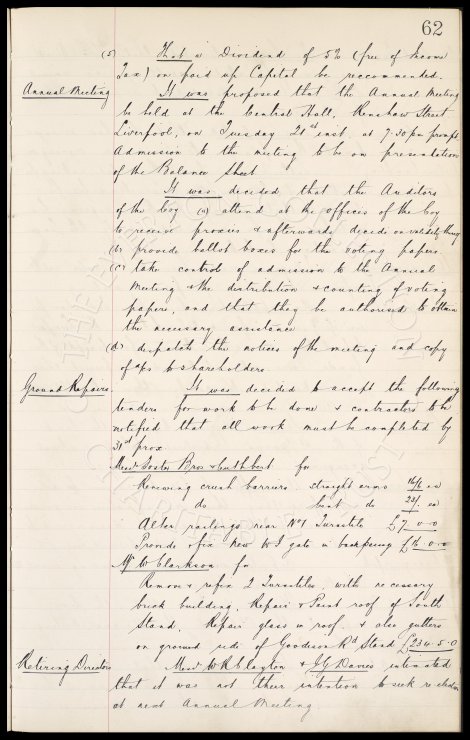 62
(5) That a Dividend of 5% (free of Income
Tax) on paid up Capital be recommended.
Annual Meeting It was proposed that the Annual Meeting
be held at the Central Hall, Renshaw Street
Liverpool, on Tuesday 21st inst. at 7.30 pm prompt
Admission to the meeting to be on presentation
of the Balance Sheet
It was decided that the Auditors
of the Coy (a) attend at the offices of the Coy
to receive proxies & afterwards decide on validity thereof
(b) provide ballot boxes for the voting papers
(c) take control of admission to the Annual
Meeting & the distribution & counting of voting
papers, and that they be authorised to obtain
the necessary assistance
(d) despatch the notices of the meeting and copy
of a/cs to shareholders.
Ground Repairs It was decided to accept the following
tenders for work to be done & contractors to be
notified that all work must be completed by
31st prox.
Messrs Foster Bros & Cuthbert for
Renewing crush barriers straight arms 16/6 ea
do bent do 23/- ea
Alter railings near No 1 Turnstile £7-0-0
Provide & fix new W I gate in back £16-0-0
Mr W Clarkson for
Remove & refix 2 Turnstiles, with necessary
brick building, Repair & Paint roof of South
Stand. Repair glass in roof & also gutters
on ground side of Goodison Rd Stand £234-5-0
Retiring Directors Messrs W R Clayton & J G Davies intimated
that it was not their intention to seek re-election
at next Annual Meeting